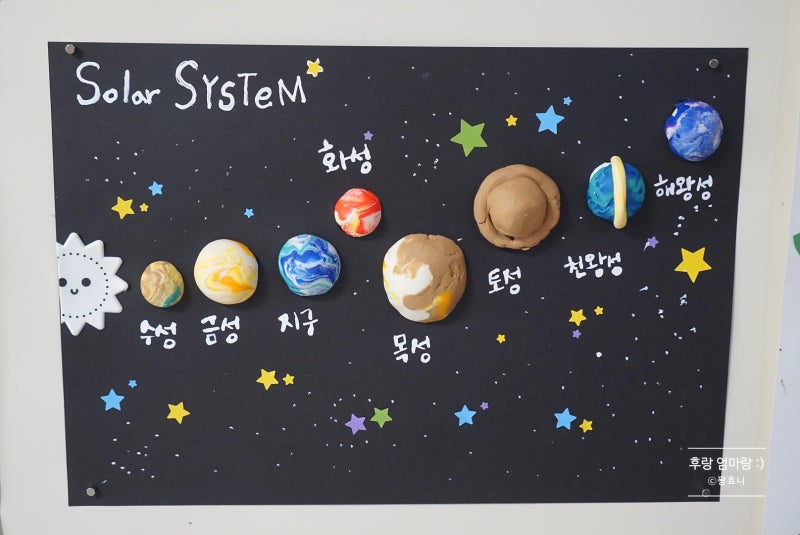 Solar SYSTeM
화성
해왕성
토성
천왕성
수성 금성 지구
목성
후랑 엄마랑 :)
©짱효니